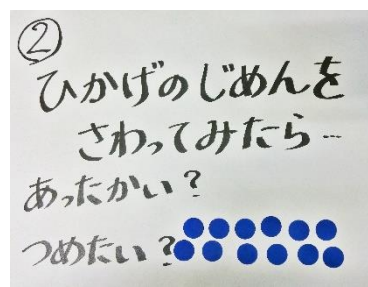 ②
ひかげのじめんを
さわってみたら…
あったかい？
つめたい？